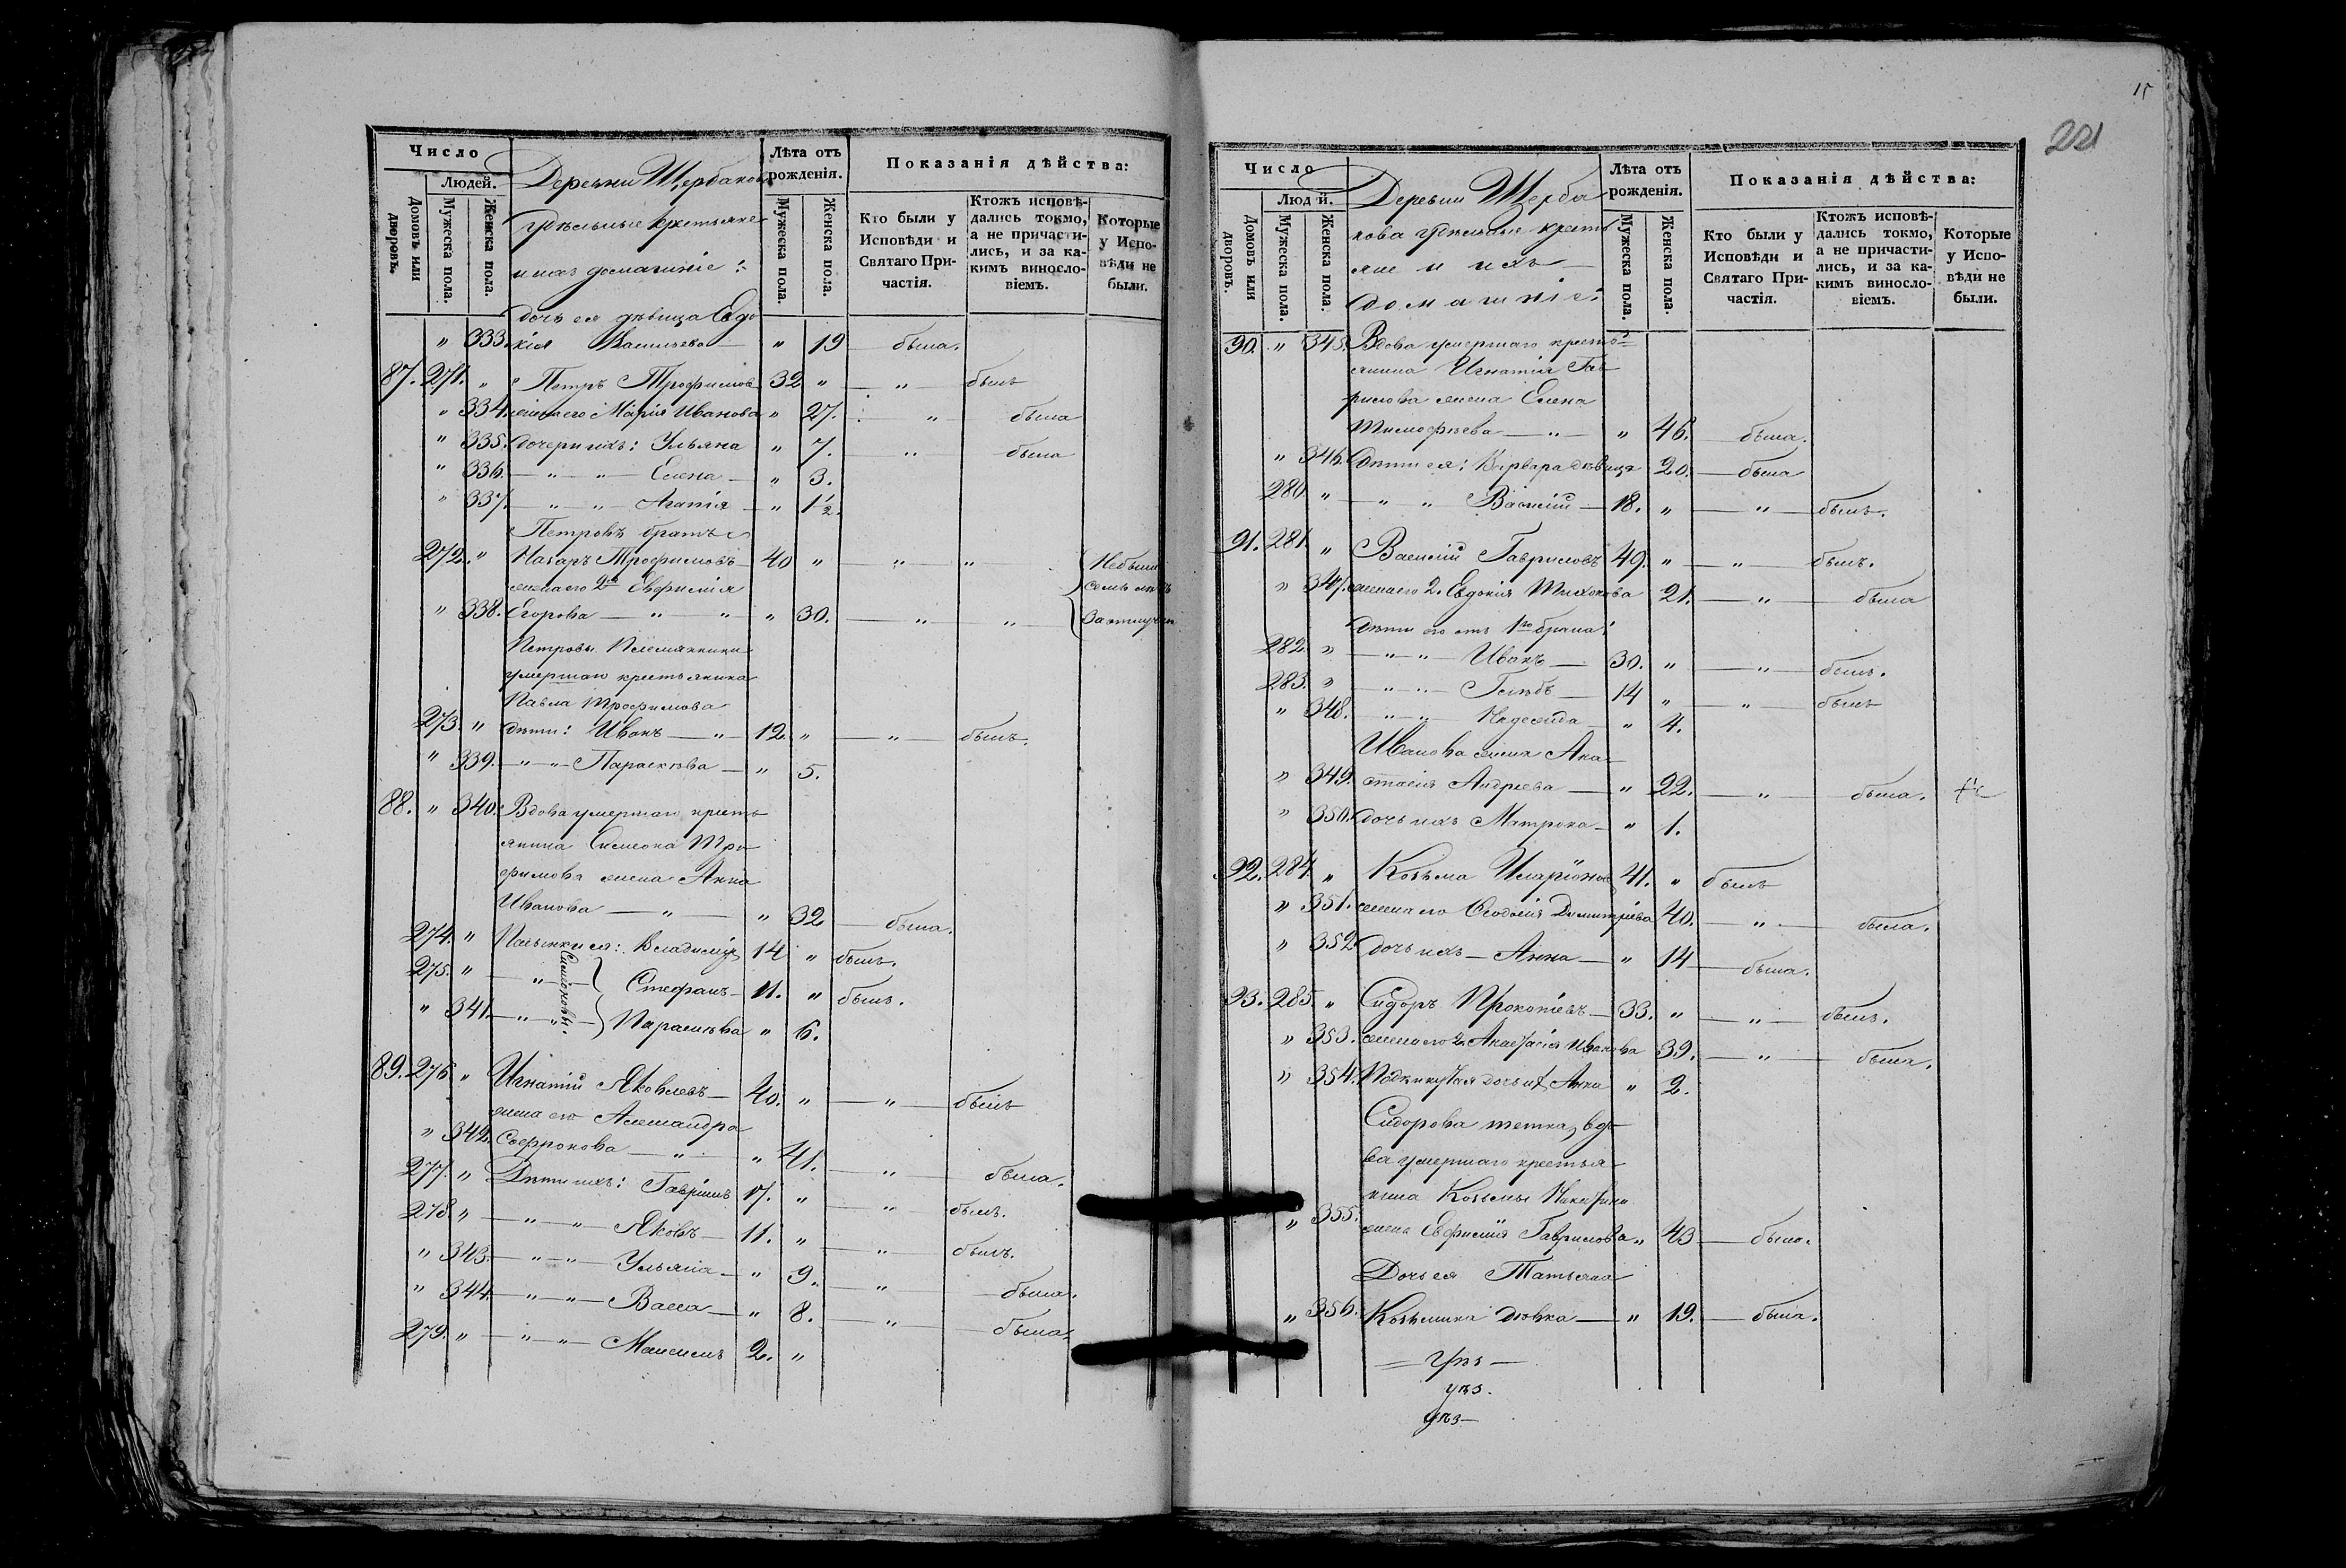 Число
Людей.
Домовъ или дворовъ.
Мужеска пола.
Женска пола.
Деревни Щербакова
удѣльные крестьяне
и ихъ домашніе:
Лѣта отъ рожденія.
Мужеска пола.
Женска пола.
Показанія дѣйства:
Кто были у Исповѣди и Святаго Причастія.
Ктожъ исповѣдались токмо, а не причастились, и за какимъ винословіемъ.
Которые у Исповѣди не были.
дочь ея дѣвица Евдо
" 333. кія Васильева — " 19 — была.
87. 271. " Петръ Трофимовъ 32 " — " — былъ
" 334. жена его Марія Иванова " 27. " была
" 335. дочери ихъ: Ульяна " 7. " была
" 336. — " — " — Елена — " 3.
" 337. — " — " — Агапія — " 1½.
Петровъ братъ
272. " Назаръ Трофимовъ 40 " — " — " Небыли
жена его 2я Евфимія семь лѣтъ
" 338. Егорова — " — " " 30. — " — " За отлуч
Петровы племянники
умершаго крестьянина
Павла Трофимова
273. " дѣти: Иванъ — " — 12. " — " — былъ.
" 339. — " — " — Параскева — " 5.
88. " 340. Вдова умершаго кресть
янина Симеона Тро
фимова жена Анна
Иванова — " — " 32 — была.
274. " Пасынки ея: Владиміръ 14 " былъ.
Симеоновы.
275. " — " — Стефанъ — 11. " былъ.
" 341. — " — " — Параскева " 6.
89. 276. " Игнатій Яковлевъ — 40. " — " — былъ
жена его Александра
" 342. Софронова — " — " 41. — " — была.
277. " Дѣти ихъ: Гавріилъ 17. " — " — былъ.
278 " — " — " — Яковъ — 11. " — " — былъ.
" 343. — " — " — Ульяна — " 9. — " — была.
" 344. — " — " — Васса — " 8. " была.
279. " — " — " — Максимъ 2. "
15
221
Число
Людй.
Домовъ или дворовъ.
Мужеска пола.
Женска пола.
Деревни Щерба
кова удѣльные кресть
яне и ихъ
домашніе:
Лѣта отъ рожденія.
Мужеска пола.
Женска пола.
Показанія дѣйства:
Кто были у Исповѣди и Святаго Причастія.
Ктожъ исповѣдались токмо, а не причастились, и за какимъ винословіемъ.
Которые у Исповѣди не были.
90. " 345. Вдова умершаго кресть
янина Игнатія Гав
рилова жена Елена
Тимофѣева — " — " 46. — была.
" 346. Дѣти ея: Варвара дѣвица 20. — была
280. " — " " Василій — 18. " — " — былъ.
91. 281. " Василій Гавриловъ 49. " — " — былъ.
" 347. жена его 2. Евдокія Тихонова 21. — " — была
Дѣти его отъ 1го брака:
282. " — " — " — Иванъ — 30. " — " — былъ.
283. " — " — " — Глѣбъ — 14 " — " — былъ
" 348. — " — " Надежда — " 4.
Иванова жена Ана
" 349. стасія Андреева — " 22. — " — была.
" 350. дочь ихъ Матрона — " 1.
92. 284. " Козьма Иларіоновъ 41. " былъ
" 351. жена его Ѳеодосія Димитріева 40. — " — была.
" 352 дочь ихъ — Анна — " 14 — была.
93. 285. " Сидоръ Прокопіевъ — 33. " — " — былъ.
" 353. жена его 2. Анастасія Иванова 39. — " — была.
" 354. Подкинутая дочь их Анна " 2.
Сидорова тетка, вдо
ва умершаго крестья
нина Козьмы Никитина
" 355. жена Евфимія Гаврилова " 43 — была.
Дочь ея Татьяна
" 356. Козьмина дѣвка — " 19. — была.